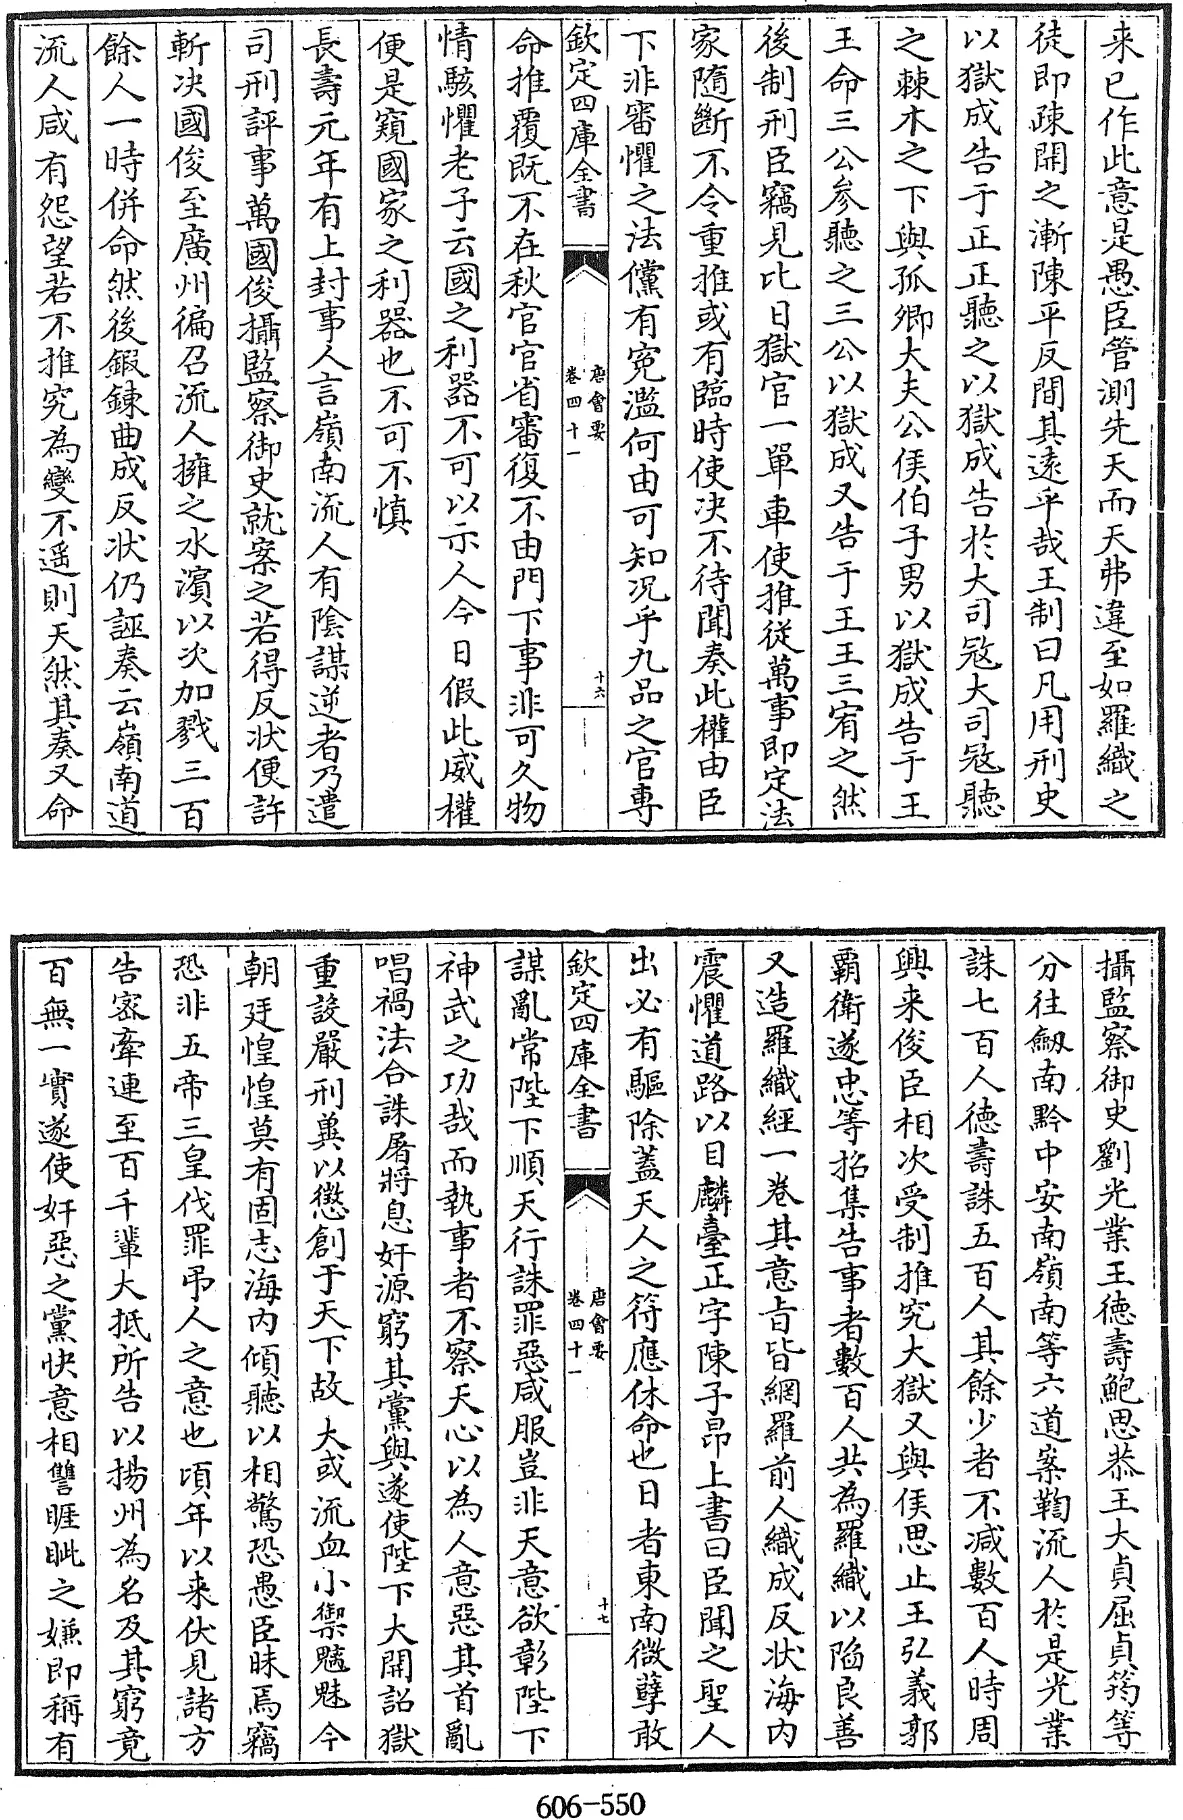 来已作此意是愚臣管測先天而天弗違至如羅織之
徒即疎間之漸陳平反間其遠乎哉王制曰凡用刑史
以獄成告于正正聽之以獄成告於大司冦大司冦聽
之棘木之下與孤卿大夫公侯伯子男以獄成告于王
王命三公參聽之三公以獄成又告于王王三宥之然
後制刑臣竊見比日獄官一單車使推從萬事即定法
家隨斷不令重推或有臨時使決不待聞奏此權由臣
下非審懼之法儻有寃濫何由可知況乎九品之官專
欽定四庫全書
唐會要
卷四十一
十六
命推覆既不在秋官官省審復不由門下事非可久物
情駭懼老子云國之利器不可以示人今日假此威權
便是窺國家之利器也不可不慎
長壽元年有上封事人言嶺南流人有陰謀逆者乃遣
司刑評事萬國俊攝監察御史就案之若得反狀便許
斬決國俊至廣州徧召流人擁之水濱以次加戮三百
餘人一時併命然後鍜鍊曲成反狀仍誣奏云嶺南道
流人咸有怨望若不推究為變不遥則天然其奏又命
攝監察御史劉光業王德壽鮑思恭王大貞屈貞筠等
分往劒南黔中安南嶺南等六道案鞫流人於是光業
誅七百人德壽誅五百人其餘少者不減數百人時周
興来俊臣相次受制推究大獄又與侯思止王弘義郭
霸衛遂忠等招集告事者數百人共為羅織以陷良善
又造羅織經一卷其意旨皆網羅前人織成反狀海内
震懼道路以目麟臺正字陳子昂上書曰臣聞之聖人
出必有驅除蓋天人之符應休命也日者東南微孽敢
欽定四庫全書
唐會要
卷四十一
十七
謀亂常陛下順天行誅罪惡咸服豈非天意欲彰陛下
神武之功哉而執事者不察天心以為人意惡其首亂
唱禍法合誅屠將息奸源窮其黨與遂使陛下大開詔獄
重設嚴刑兾以懲創于天下故大或流血小禦魑魅今
朝廷惶惶莫有固志海内傾聽以相驚恐愚臣昧焉竊
恐非五帝三皇伐罪弔人之意也頃年以来伏見諸方
告密牽連至百千輩大抵所告以揚州為名及其窮竟
百無一實遂使奸惡之黨快意相讐睚眦之嫌即稱有
606-550